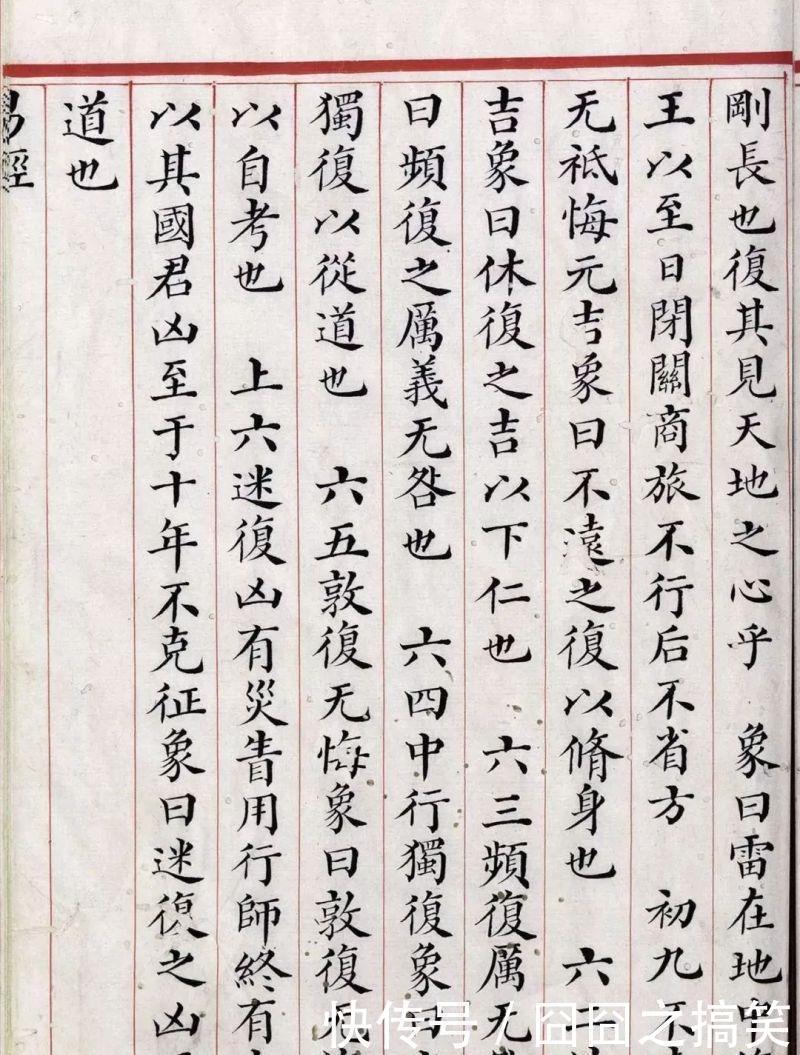 剛長也復其見天地之心乎 象曰雷在地中
王以至日閉關商旅不行后不省方 初九不
无祗悔元吉象曰不遠之復以脩身也 六二
吉象曰休復之吉以下仁也 六三頻復厲无
曰頻復之厲義无咎也 六四中行獨復象曰
獨復以從道也 六五敦復无悔象曰敦復无
以自考也 上六迷復凶有災眚用行師終有
以其國君凶至于十年不克征象曰迷復之凶
道也
易經
快传号/囧囧之搞笑